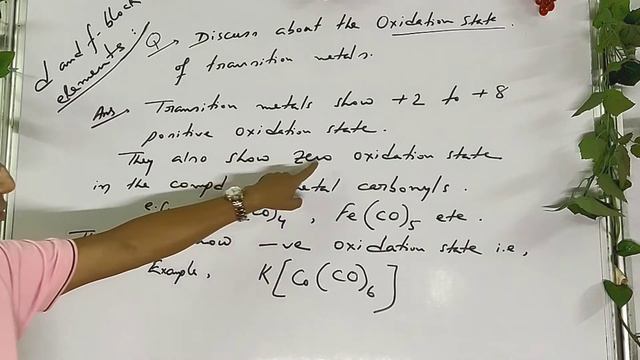 d and f-block
elements:
Q → Discuss about the Oxidation State
of transition metals.
Ans → Transition metals show +2 to +8
positive oxidation state.
They also show zero oxidation state
in the compd metal carbonyls.
e.g. (CO)4, Fe(CO)5 etc.
show -ve oxidation state i.e,
Example, K[Co(CO)6]